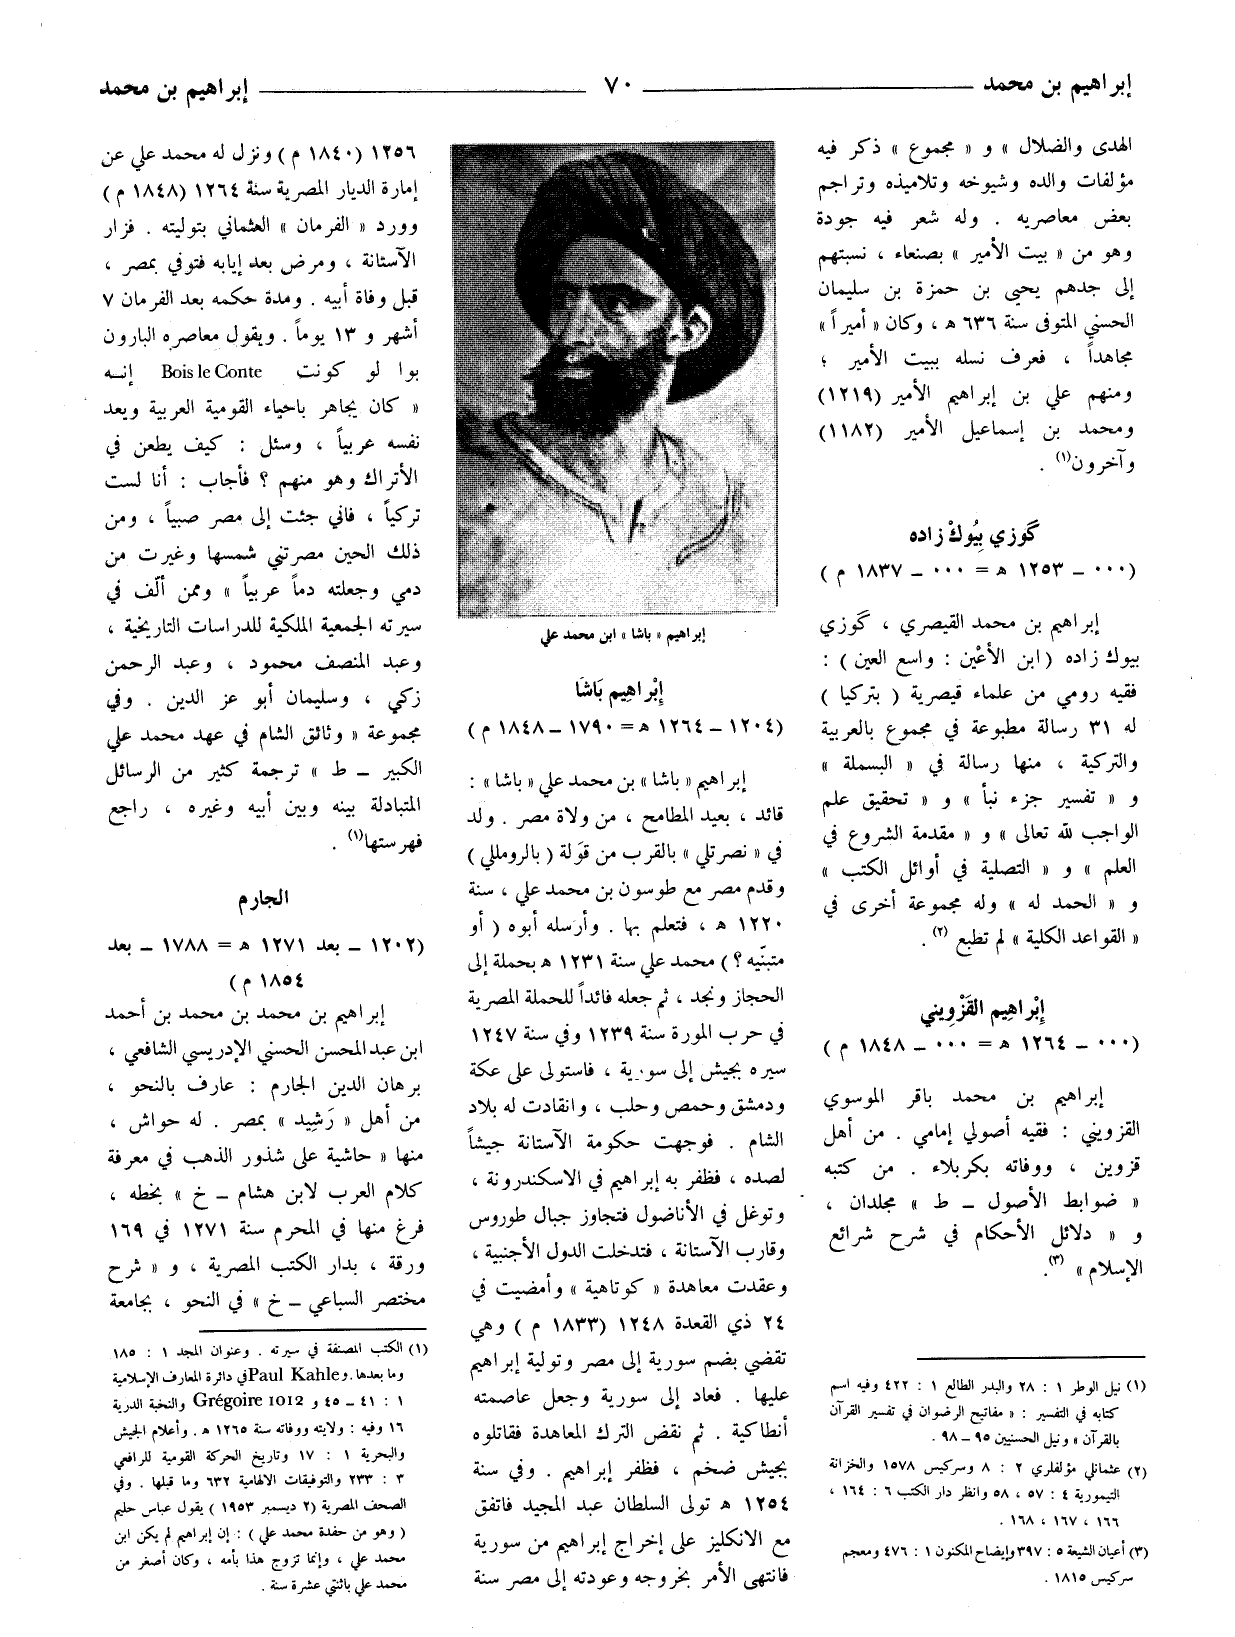 إبراهيم بن محمد
٧٠
إبراهيم بن محمد
الهدى والضلال » و « مجموع » ذكر فيه
مؤلفات والده وشيوخه وتلاميذه وتراجم
بعض معاصريه . وله شعر فيه جودة
وهو من « بيت الأمير » بصنعاء ، نسبتهم
إلى جدهم يحيى بن حمزة بن سليمان
الحسني المتوفى سنة ٦٣٦ ه‍ ، وكان « أميراً »
مجاهداً ، فعرف نسله ببيت الأمير ؛
ومنهم علي بن إبراهيم الأمير (١٢١٩)
ومحمد بن إسماعيل الأمير (١١٨٢)
وآخرون(١) .
گوزي بِيُوكْ زاده
(٠٠٠ ــ ١٢٥٣ ه‍ = ٠٠٠ ــ ١٨٣٧ م )
إبراهيم بن محمد القيصري ، گوزي
بيوك زاده ( ابن الأعْين : واسع العين ) :
فقيه رومي من علماء قيصرية ( بتركيا )
له ٣١ رسالة مطبوعة في مجموع بالعربية
والتركية ، منها رسالة في « البسملة »
و « تفسير جزء نبأ » و « تحقيق علم
الواجب لله تعالى » و « مقدمة الشروع في
العلم » و « التصلية في أوائل الكتب »
و « الحمد له » وله مجموعة أخرى في
« القواعد الكلية » لم تطبع (٢) .
إبْراهِيم القَزْويني
(٠٠٠ ــ ١٢٦٤ ه‍ = ٠٠٠ ــ ١٨٤٨ م )
إبراهيم بن محمد باقر الموسوي
القزويني : فقيه أصولي إمامي . من أهل
قزوين ، ووفاته بكربلاء . من كتبه
« ضوابط الأصول ــ ط » مجلدان ،
و « دلائل الأحكام في شرح شرائع
الإسلام » (٣).
(١) نيل الوطر ١ : ٢٨ والبدر الطالع ١ : ٤٢٢ وفيه اسم
كتابه في التفسير : « مفاتيح الرضوان في تفسير القرآن
بالقرآن » ونيل الحسنيين ٩٥ ــ ٩٨ .
(٢) عثمانلي مؤلفلري ٢ : ٨ وسركيس ١٥٧٨ والخزانة
التيمورية ٤ : ٥٧ ، ٥٨ وانظر دار الكتب ٦ : ١٦٤ ،
١٦٦ ، ١٦٧ ، ١٦٨ .
(٣) أعيان الشيعة ٥ : ٣٩٧ وإيضاح المكنون ١ : ٤٧٦ ومعجم
سركيس ١٨١٥ .
إبراهيم « باشا » ابن محمد علي
إبْراهِيم بَاشَا
(١٢٠٤ ــ ١٢٦٤ ه‍ = ١٧٩٠ ــ ١٨٤٨ م )
إبراهيم « باشا » بن محمد علي « باشا » :
قائد ، بعيد المطامح ، من ولاة مصر . ولد
في « نصرتلي » بالقرب من قَولة ( بالرومللي )
وقدم مصر مع طوسون بن محمد علي ، سنة
١٢٢٠ ه‍ ، فتعلم بها . وأرسله أبوه ( أو
متبنّيه ؟ ) محمد علي سنة ١٢٣١ ه‍ بحملة إلى
الحجاز ونجد ، ثم جعله قائداً للحملة المصرية
في حرب المورة سنة ١٢٣٩ وفي سنة ١٢٤٧
سيره بجيش إلى سورية ، فاستولى على عكة
ودمشق وحمص وحلب ، وانقادت له بلاد
الشام . فوجهت حكومة الآستانة جيشاً
لصده ، فظفر به إبراهيم في الاسكندرونة ،
وتوغل في الأناضول فتجاوز جبال طوروس
وقارب الآستانة ، فتدخلت الدول الأجنبية ،
وعقدت معاهدة « كوتاهية » وأمضيت في
٢٤ ذي القعدة ١٢٤٨ (١٨٣٣ م ) وهي
تقضي بضم سورية إلى مصر وتولية إبراهيم
عليها . فعاد إلى سورية وجعل عاصمته
أنطاكية . ثم نقض الترك المعاهدة فقاتلوه
بجيش ضخم ، فظفر إبراهيم . وفي سنة
١٢٥٤ ه‍ تولى السلطان عبد المجيد فاتفق
مع الانكليز على إخراج إبراهيم من سورية
فانتهى الأمر بخروجه وعودته إلى مصر سنة
١٢٥٦ (١٨٤٠ م ) ونزل له محمد علي عن
إمارة الديار المصرية سنة ١٢٦٤ (١٨٤٨ م )
وورد « الفرمان » العثماني بتوليته . فزار
الآستانة ، ومرض بعد إيابه فتوفي بمصر ،
قبل وفاة أبيه . ومدة حكمه بعد الفرمان ٧
أشهر و ١٣ يوماً . ويقول معاصره البارون
بوا لو كونت Bois le Conte إنه
« كان يجاهر باحياء القومية العربية ويعد
نفسه عربياً ، وسئل : كيف يطعن في
الأتراك وهو منهم ؟ فأجاب : أنا لست
تركياً ، فاني جئت إلى مصر صبياً ، ومن
ذلك الحين مصرتني شمسها وغيرت من
دمي وجعلته دماً عربياً » وممن ألّف في
سيرته الجمعية الملكية للدراسات التاريخية ،
وعبد المنصف محمود ، وعبد الرحمن
زكي ، وسليمان أبو عز الدين . وفي
مجموعة « وثائق الشام في عهد محمد علي
الكبير ــ ط » ترجمة كثير من الرسائل
المتبادلة بينه وبين أبيه وغيره ، راجع
فهرستها(١) .
الجارم
(١٢٠٢ ــ بعد ١٢٧١ ه‍ = ١٧٨٨ ــ بعد
١٨٥٤ م )
إبراهيم بن محمد بن محمد بن أحمد
ابن عبد المحسن الحسني الإدريسي الشافعي ،
برهان الدين الجارم : عارف بالنحو ،
من أهل « رَشِيد » بمصر . له حواش ،
منها « حاشية على شذور الذهب في معرفة
كلام العرب لابن هشام ــ خ » بخطه ،
فرغ منها في المحرم سنة ١٢٧١ في ١٦٩
ورقة ، بدار الكتب المصرية ، و « شرح
مختصر السباعي ــ خ » في النحو ، بجامعة
(١) الكتب المصنفة في سيرته . وعنوان المجد ١ : ١٨٥
وما بعدها. و Paul Kahle في دائرة المعارف الإسلامية
١ : ٤١ ــ ٤٥ و Grégoire 1012 والنخبة الدرية
١٦ وفيه : ولايته ووفاته سنة ١٢٦٥ ه‍ . وأعلام الجيش
والبحرية ١ : ١٧ وتاريخ الحركة القومية للرافعي
٣ : ٢٣٣ والتوفيقات الالهامية ٦٣٢ وما قبلها . وفي
الصحف المصرية (٢ ديسمبر ١٩٥٣ ) يقول عباس حليم
( وهو من حفدة محمد علي ) : إن إبراهيم لم يكن ابن
محمد علي ، وإنما تزوج هذا بأمه ، وكان أصغر من
محمد علي باثنتي عشرة سنة .